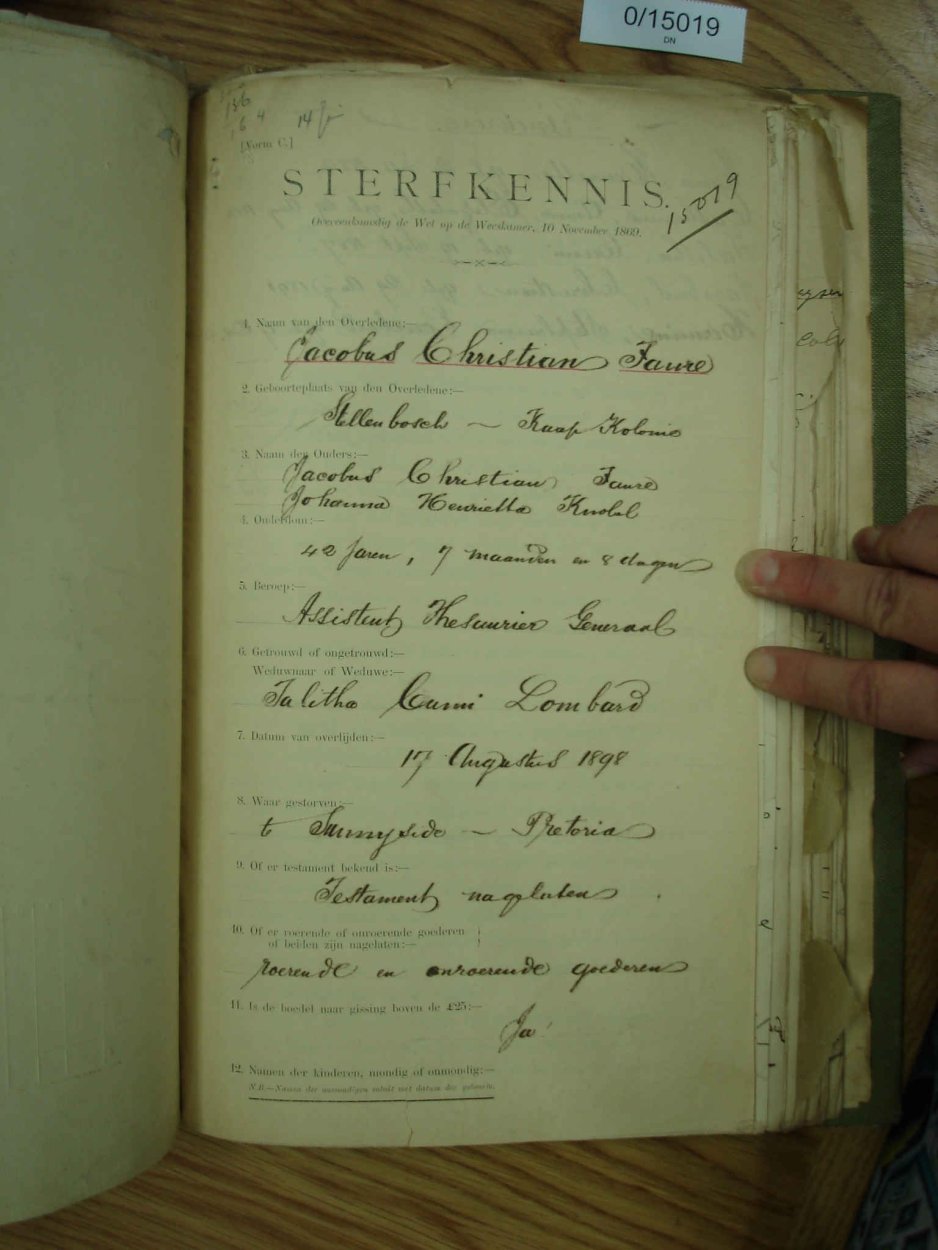 0/15019
DN
136
6 4
[Form C.]
STERFKENNIS.
15019
Overeenkomstig de Wet op de Weeskamer, 10 November 1869.
1. Naam van den Overledene:—
Jacobus Christian Faure
2. Geboorteplaats van den Overledene:—
Stellenbosch — Kaap Kolonie
3. Naam der Ouders:—
Jacobus Christian Faure
Johanna Henrietta Knobel
4. Ouderdom:—
42 Jaren, 7 maanden en 8 dagen
5. Beroep:—
Assistent Thesaurier Generaal
6. Getrouwd of ongetrouwd:—
Weduwnaar of Weduwe:—
Talitha Cumi Lombard
7. Datum van overlijden:—
17 Augustus 1898
8. Waar gestorven:—
te Sunnyside — Pretoria
9. Of er testament bekend is:—
Testament nagelaten
10. Of er roerende of onroerende goederen
of beiden zijn nagelaten:—
roerende en onroerende goederen
11. Is de boedel naar gissing boven de £25:—
Ja!
12. Namen der kinderen, mondig of onmondig:—
N.B.—Namen der onmondigen voluit met datum der geboorte.